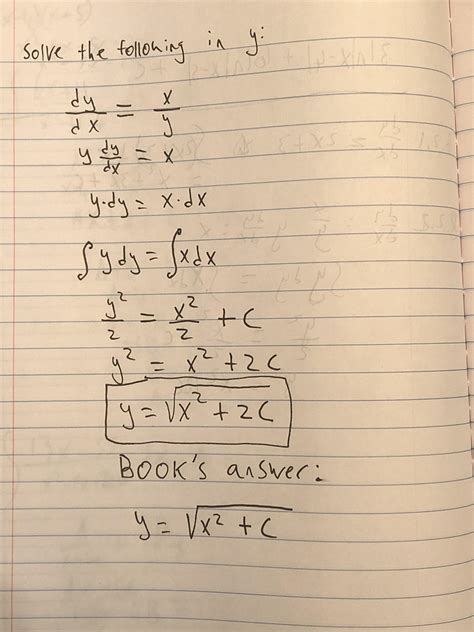 Solve the following in y:
dy/dx = x/y
y dy/dx = x
y·dy = x·dx
∫y dy = ∫x dx
y²/2 = x²/2 + C
y² = x² + 2C
y = √(x² + 2C)
BOOK's answer:
y = √(x² + C)